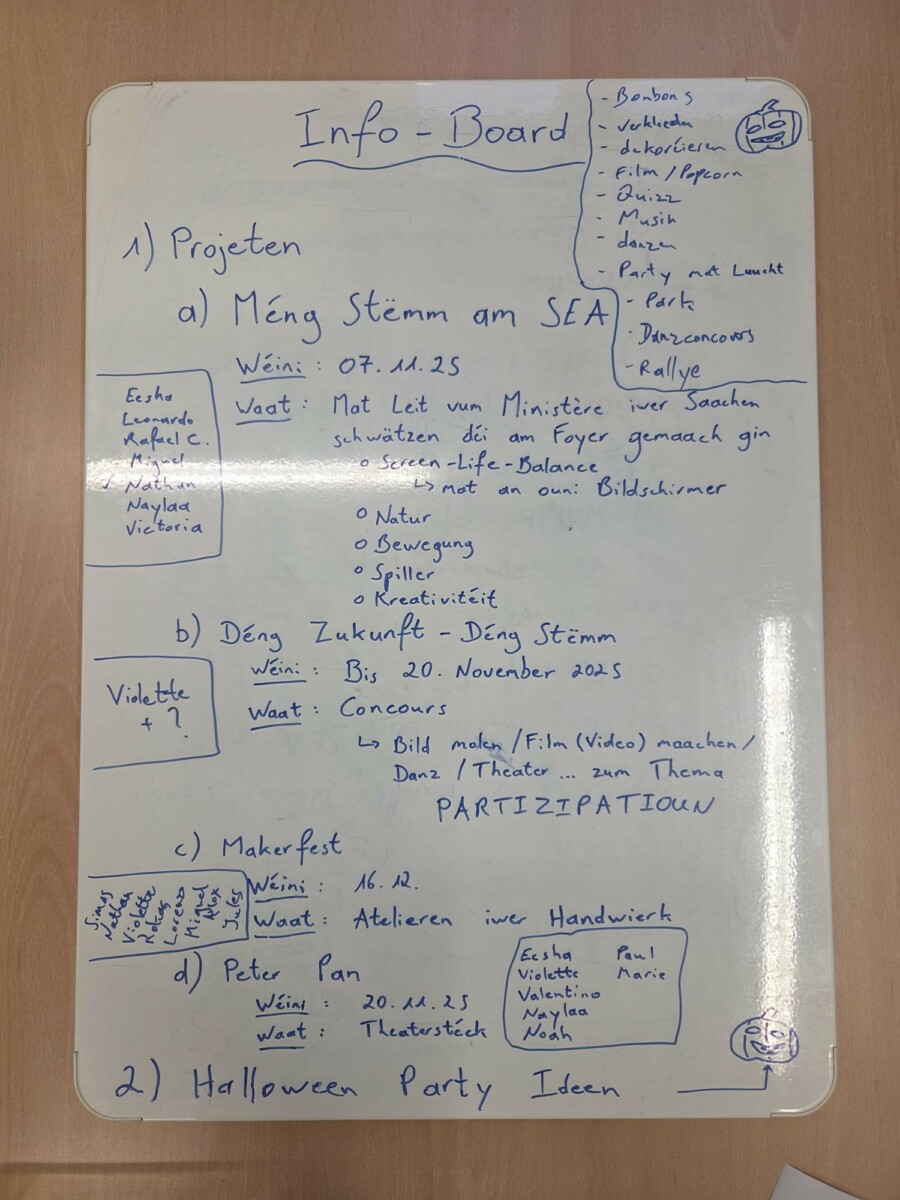 Info - Board
- Bonbons
- verkleeden
- dekoréieren
- Film / Popcorn
- Quizz
- Musik
- danzen
- Party mat Luucht
- Park
- Danzconcours
- Rallye
1) Projeten
a) Méng Stëmm am SEA
Wéini : 07.11.25
Waat : Mat Leit vum Ministère iwer Saachen
schwätzen déi am Foyer gemaach gin
o Screen-Life-Balance
↳ mat an ouni Bildschirmer
o Natur
o Bewegung
o Spiller
o Kreativitéit
Eesha
Leonardo
Rafael C.
Miguel
✓ Nathan
Naylaa
Victoria
b) Déng Zukunft - Déng Stëmm
Wéini : Bis 20. November 2025
Waat : Concours
↳ Bild molen / Film (Video) maachen /
Danz / Theater ... zum Thema
PARTIZIPATIOUN
Violette
+ ?
c) Makerfest
Wéini : 16.12.
Waat : Atelieren iwer Handwierk
Simas
Nathan
Violette
Rokas
Lorenzo
Miguel
Alex
Jules
d) Peter Pan
Wéini : 20.11.25
Waat : Theaterstéck
Eesha Paul
Violette Marie
Valentino
Naylaa
Noah
2) Halloween Party Ideen